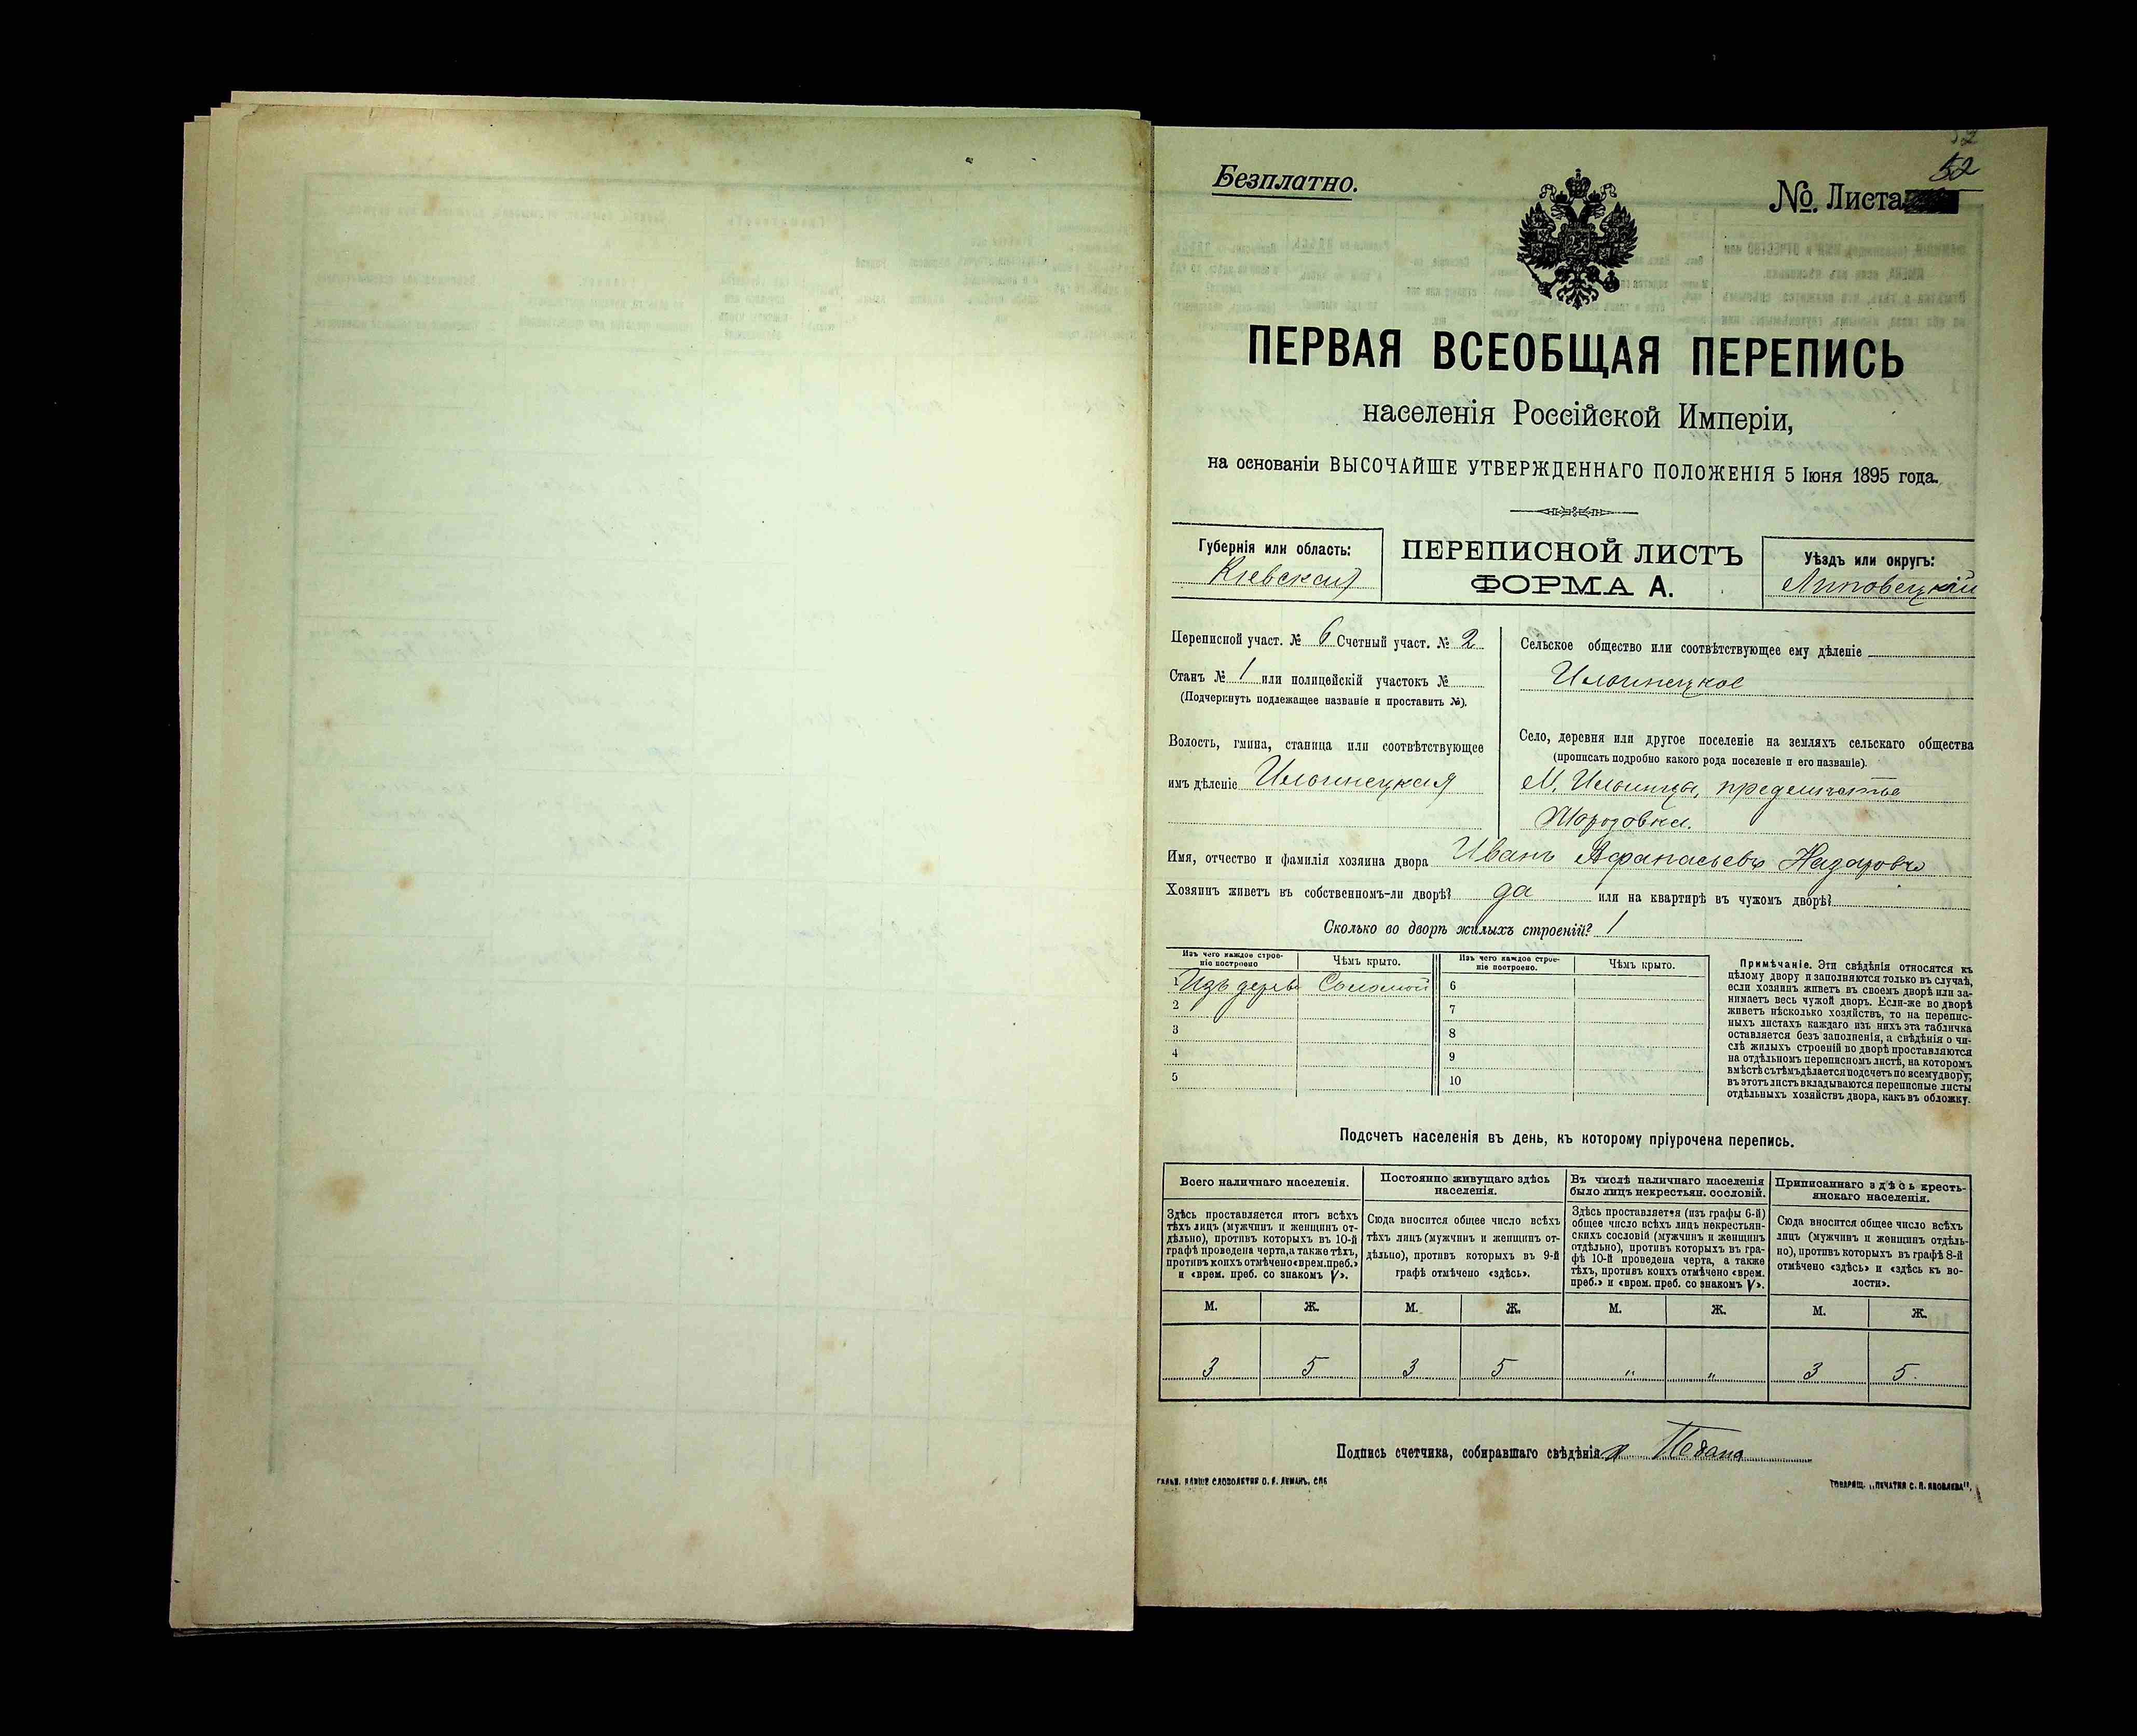 52
Безплатно.
№. Листа
ПЕРВАЯ ВСЕОБЩАЯ ПЕРЕПИСЬ
населенія Россійской Имперіи,
на основаніи ВЫСОЧАЙШЕ УТВЕРЖДЕННАГО ПОЛОЖЕНІЯ 5 Іюня 1895 года.
Губернія или область:
Кіевская
ПЕРЕПИСНОЙ ЛИСТЪ
ФОРМА А.
Уѣздъ или округъ:
Липовецкій
Переписной участ. № 6 Счетный участ. № 2
Станъ № 1 или полицейскій участокъ №
(Подчеркнуть подлежащее названіе и проставить №).
Волость, гмина, станица или соотвѣтствующее
имъ дѣленіе Ильинецкая
Сельское общество или соотвѣтствующее ему дѣленіе
Ильинецкое
Село, деревня или другое поселеніе на земляхъ сельскаго общества
(прописать подробно какого рода поселеніе и его названіе).
М, Ильинцы, предмѣстье
Имя, отчество и фамилія хозяина двора Иванъ Афанасьевъ Назаровъ
Хозяинъ живетъ въ собственномъ-ли дворѣ? да или на квартирѣ въ чужомъ дворѣ?
Сколько во дворѣ жилыхъ строеній? 1
Изъ чего каждое строе-
ніе построено
Чѣмъ крыто.
Изъ чего каждое строе-
ніе построено.
Чѣмъ крыто.
1 Изъ дерева Соломой
6
2
7
3
8
4
9
5
10
Примѣчаніе. Эти свѣдѣнія относятся къ
цѣлому двору и заполняются только въ случаѣ,
если хозяинъ живетъ въ своемъ дворѣ или за-
нимаетъ весь чужой дворъ. Если-же во дворѣ
живетъ нѣсколько хозяйствъ, то на перепис-
ныхъ листахъ каждаго изъ нихъ эта табличка
оставляется безъ заполненія, а свѣдѣнія о чи-
слѣ жилыхъ строеній во дворѣ проставляются
на отдѣльномъ переписномъ листѣ, на которомъ
вмѣстѣ съ тѣмъ дѣлается подсчетъ по всему двору;
въ этотъ листъ вкладываются переписные листы
отдѣльныхъ хозяйствъ двора, какъ въ обложку.
Подсчетъ населенія въ день, къ которому пріурочена перепись.
Всего наличнаго населенія.
Постоянно живущаго здѣсь
населенія.
Въ числѣ наличнаго населенія
было лицъ некрестьян. сословій.
Приписаннаго здѣсь кресть-
янскаго населенія.
Здѣсь проставляется итогъ всѣхъ
тѣхъ лицъ (мужчинъ и женщинъ от-
дѣльно), противъ которыхъ въ 10-й
графѣ проведена черта, а также тѣхъ,
противъ коихъ отмѣчено «врем. преб.»
и «врем. преб. со знакомъ V».
Сюда вносится общее число всѣхъ
тѣхъ лицъ (мужчинъ и женщинъ от-
дѣльно), противъ которыхъ въ 9-й
графѣ отмѣчено «здѣсь».
Здѣсь проставляется (изъ графы 6-й)
общее число всѣхъ лицъ некрестьян-
скихъ сословій (мужчинъ и женщинъ
отдѣльно), противъ которыхъ въ гра-
фѣ 10-й проведена черта, а также
тѣхъ, противъ коихъ отмѣчено «врем.
преб.» и «врем. преб. со знакомъ V».
Сюда вносится общее число всѣхъ
лицъ (мужчинъ и женщинъ отдѣль-
но), противъ которыхъ въ графѣ 8-й
отмѣчено «здѣсь» и «здѣсь къ во-
лости».
М. Ж. М. Ж. М. Ж. М. Ж.
3 5 3 5 " " 3 5
Подпись счетчика, собиравшаго свѣдѣнія
ТОВАРИЩ. „ПЕЧАТНЯ С. П. ЯКОВЛЕВА“.